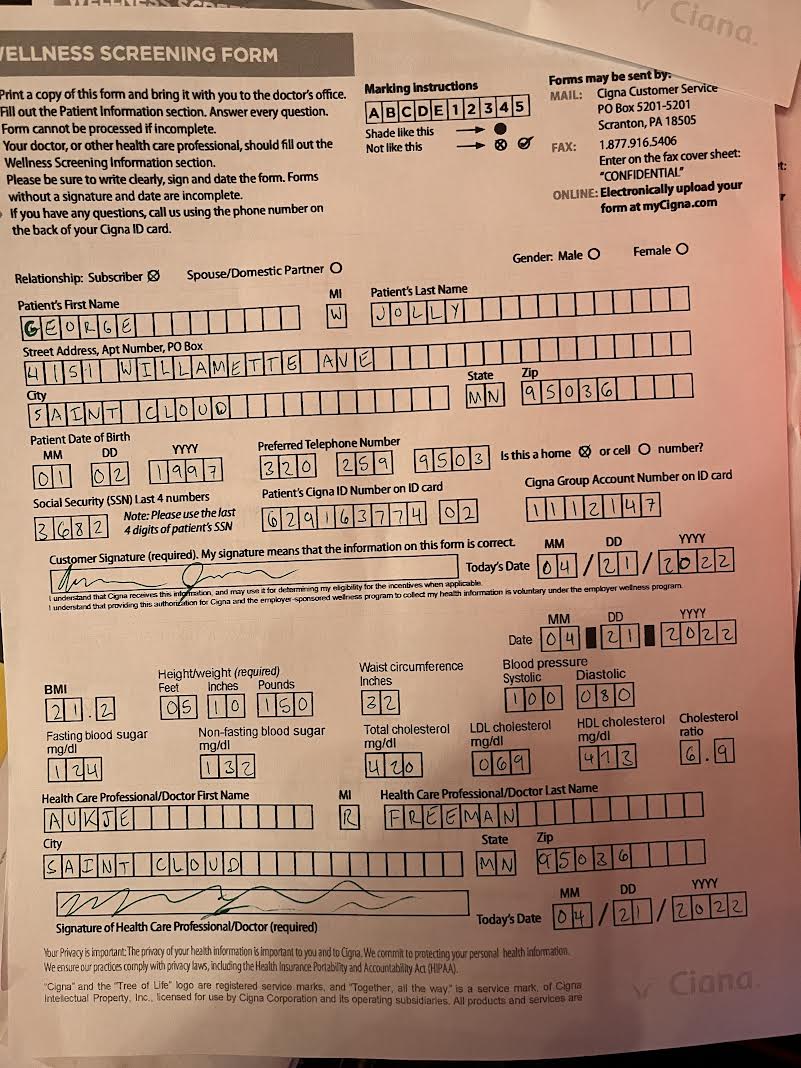 WELLNESS SCREENING FORM
Ciana.
Print a copy of this form and bring it with you to the doctor's office.
Fill out the Patient Information section. Answer every question.
Form cannot be processed if incomplete.
Your doctor, or other health care professional, should fill out the
Wellness Screening Information section.
Please be sure to write clearly, sign and date the form. Forms
without a signature and date are incomplete.
If you have any questions, call us using the phone number on
the back of your Cigna ID card.
Marking instructions
A B C D E 1 2 3 4 5
Shade like this
Not like this
Forms may be sent by:
MAIL: Cigna Customer Service
PO Box 5201-5201
Scranton, PA 18505
FAX: 1.877.916.5406
Enter on the fax cover sheet:
"CONFIDENTIAL"
ONLINE: Electronically upload your
form at myCigna.com
Relationship: Subscriber Spouse/Domestic Partner Gender: Male Female
Patient's First Name MI Patient's Last Name
GEORGE W JOLLY
Street Address, Apt Number, PO Box
4151 WILLAMETTE AVE
City State Zip
SAINT CLOUD MN 95036
Patient Date of Birth Preferred Telephone Number
MM DD YYYY
01 02 1997 320 259 9503 Is this a home or cell number?
Social Security (SSN) Last 4 numbers Patient's Cigna ID Number on ID card Cigna Group Account Number on ID card
3682 Note: Please use the last
4 digits of patient's SSN
629163774 02 1112147
Customer Signature (required). My signature means that the information on this form is correct.
MM DD YYYY
Today's Date 04/21/2022
I understand that Cigna receives this information, and may use it for determining my eligibility for the incentives when applicable.
I understand that providing this authorization for Cigna and the employer-sponsored wellness program to collect my health information is voluntary under the employer wellness program.
MM DD YYYY
Date 04 21 2022
BMI Height/weight (required) Waist circumference Blood pressure
Feet Inches Pounds Inches Systolic Diastolic
21.2 05 10 150 32 100 080
Fasting blood sugar Non-fasting blood sugar Total cholesterol LDL cholesterol HDL cholesterol Cholesterol
mg/dl mg/dl mg/dl mg/dl mg/dl ratio
124 132 420 069 413 6.9
Health Care Professional/Doctor First Name MI Health Care Professional/Doctor Last Name
AUKJE R FREEMAN
City State Zip
SAINT CLOUD MN 95036
MM DD YYYY
Signature of Health Care Professional/Doctor (required) Today's Date 04/21/2022
Your Privacy is Important: The privacy of your health information is important to you and to Cigna. We commit to protecting your personal health information.
We ensure our practices comply with privacy laws, including the Health Insurance Portability and Accountability Act (HIPAA).
"Cigna" and the "Tree of Life" logo are registered service marks, and "Together, all the way." is a service mark, of Cigna
Intellectual Property, Inc., licensed for use by Cigna Corporation and its operating subsidiaries. All products and services are
Ciana.